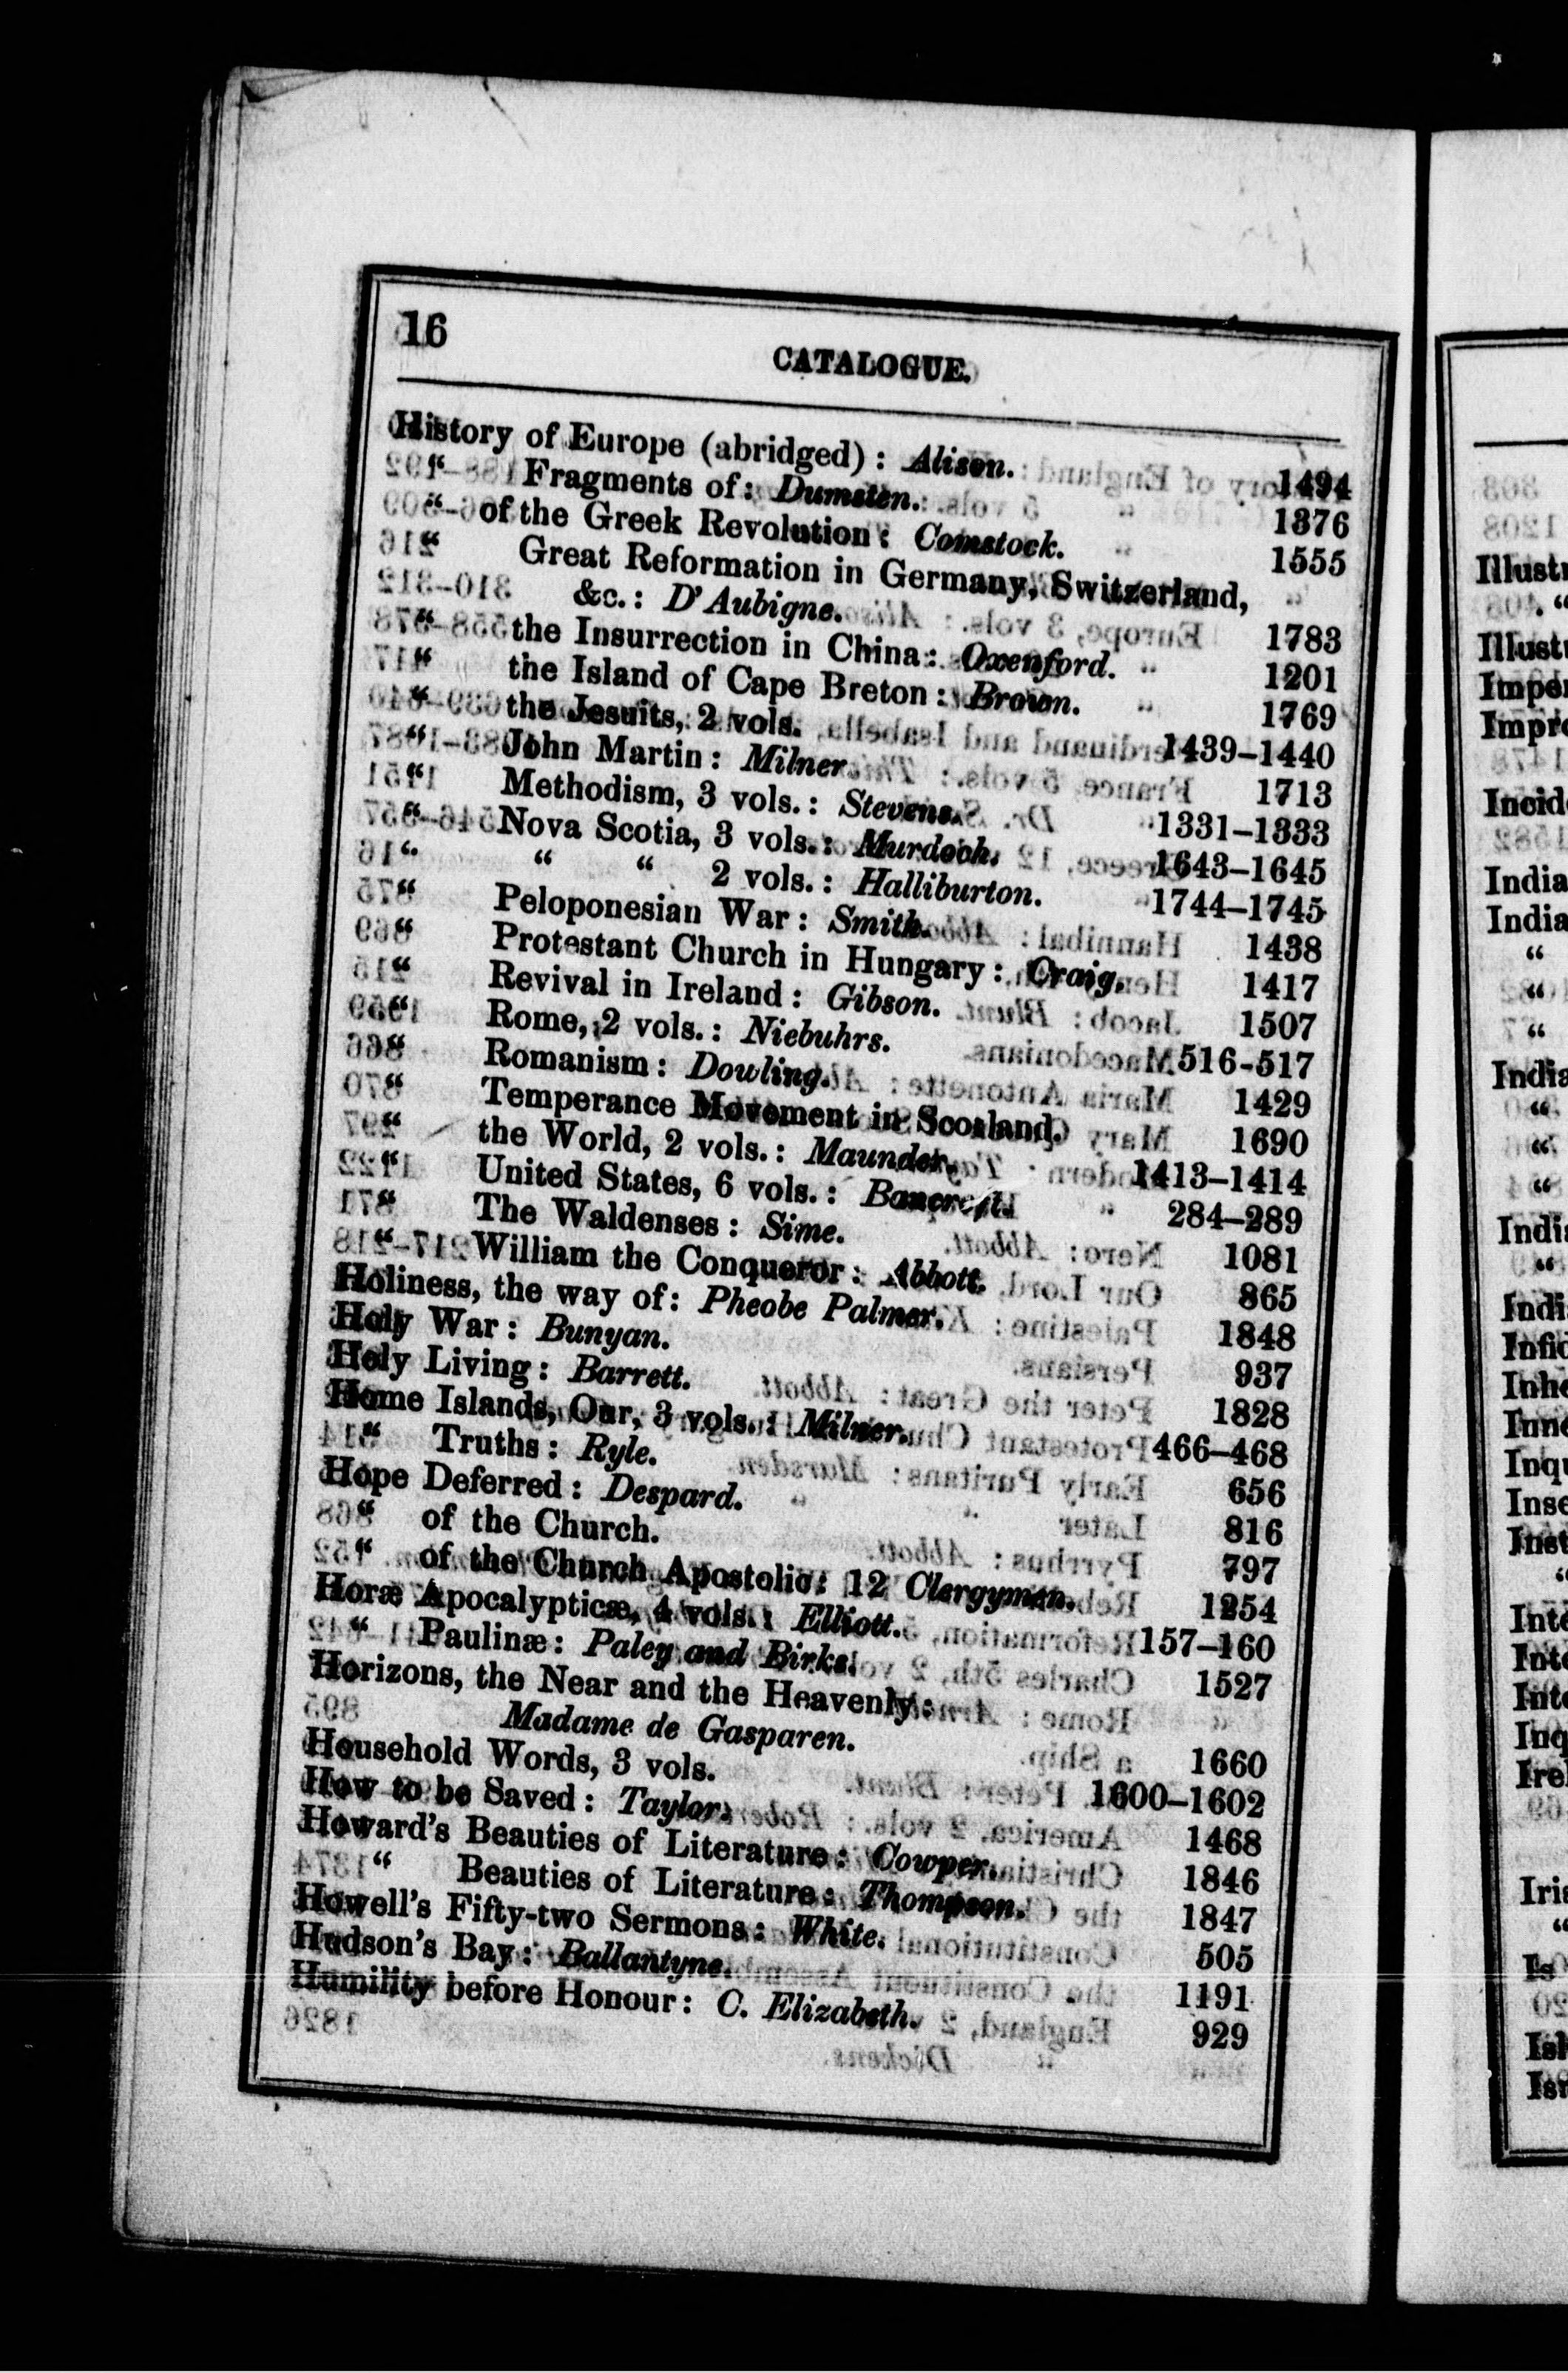 16
CATALOGUE.
History of Europe (abridged): Alison. 1494
“ Fragments of: Dumsten. 1376
“ of the Greek Revolution: Comstock. 1555
“ Great Reformation in Germany, Switzerland,
&c.: D'Aubigne. 1783
“ the Insurrection in China: Oxenford. 1201
“ the Island of Cape Breton: Brown. 1769
“ the Jesuits, 2 vols. 1439-1440
“ John Martin: Milner. 1713
“ Methodism, 3 vols.: Stevens. 1331-1333
“ Nova Scotia, 3 vols.: Murdoch. 1643-1645
“ “ “ 2 vols.: Halliburton. 1744-1745
“ Peloponesian War: Smith. 1438
“ Protestant Church in Hungary: Craig. 1417
“ Revival in Ireland: Gibson. 1507
“ Rome, 2 vols.: Niebuhrs. 516-517
“ Romanism: Dowling. 1429
“ Temperance Movement in Scotland. 1690
“ the World, 2 vols.: Maunder. 1413-1414
“ United States, 6 vols.: Bancroft. 284-289
“ The Waldenses: Sime. 1081
“ William the Conqueror: Abbott. 865
Holiness, the way of: Pheobe Palmer. 1848
Holy War: Bunyan. 937
Holy Living: Barrett. 1828
Home Islands, Our, 3 vols.: Milner. 466-468
“ Truths: Ryle. 656
Hope Deferred: Despard. 816
“ of the Church. 797
“ of the Church Apostolic: 12 Clergymen. 1254
Horæ Apocalypticæ, 4 vols.: Elliott. 157-160
“ Paulinæ: Paley and Birks. 1527
Horizons, the Near and the Heavenly:
Madame de Gasparen. 1660
Household Words, 3 vols. 1600-1602
How to be Saved: Taylor. 1468
Howard's Beauties of Literature: Cowper. 1846
“ Beauties of Literature: Thompson. 1847
Howell's Fifty-two Sermons: White. 505
Hudson's Bay: Ballantyne. 1191
Humility before Honour: C. Elizabeth. 929
Illust
“
Illust
Impe
Impr
Incid
India
India
“
“
“
India
“
“
“
Indi
“
Indi
Infi
Inhe
Inn
Inq
Inse
Inst
“
Inte
Inte
Inte
Inq
Ire
Iri
“
Is
Isl
Isr